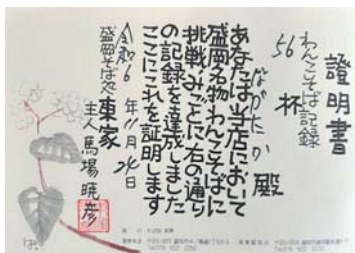 證明書
わんこそば記録
56 杯
ながたか 殿
あなたは当店において
盛岡名物わんこそばに
挑戦みごとに右の通り
の記録を達成しました
ここにこれを証明します
令和6年11月24日
盛岡そば処 東家
主人 馬場暁彦